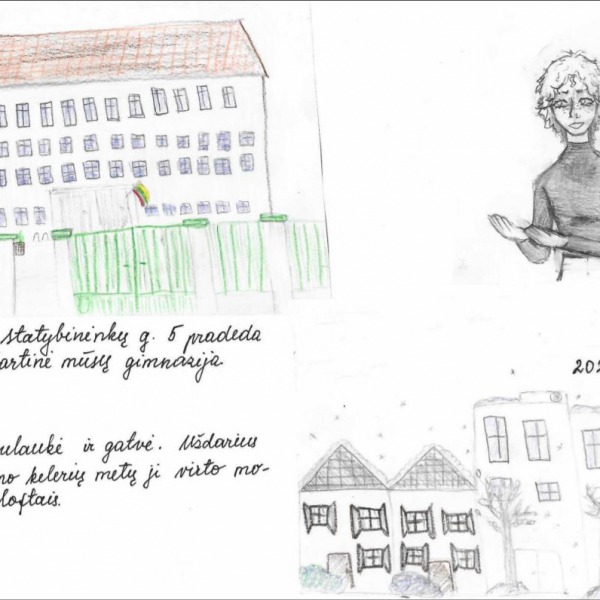 Statybininkų g. 5 pradeda
artinė mūsų gimnazija
202
ulaukė ir gatvė. Uždarius
no kelerių metų ji virto mo-
loftais.